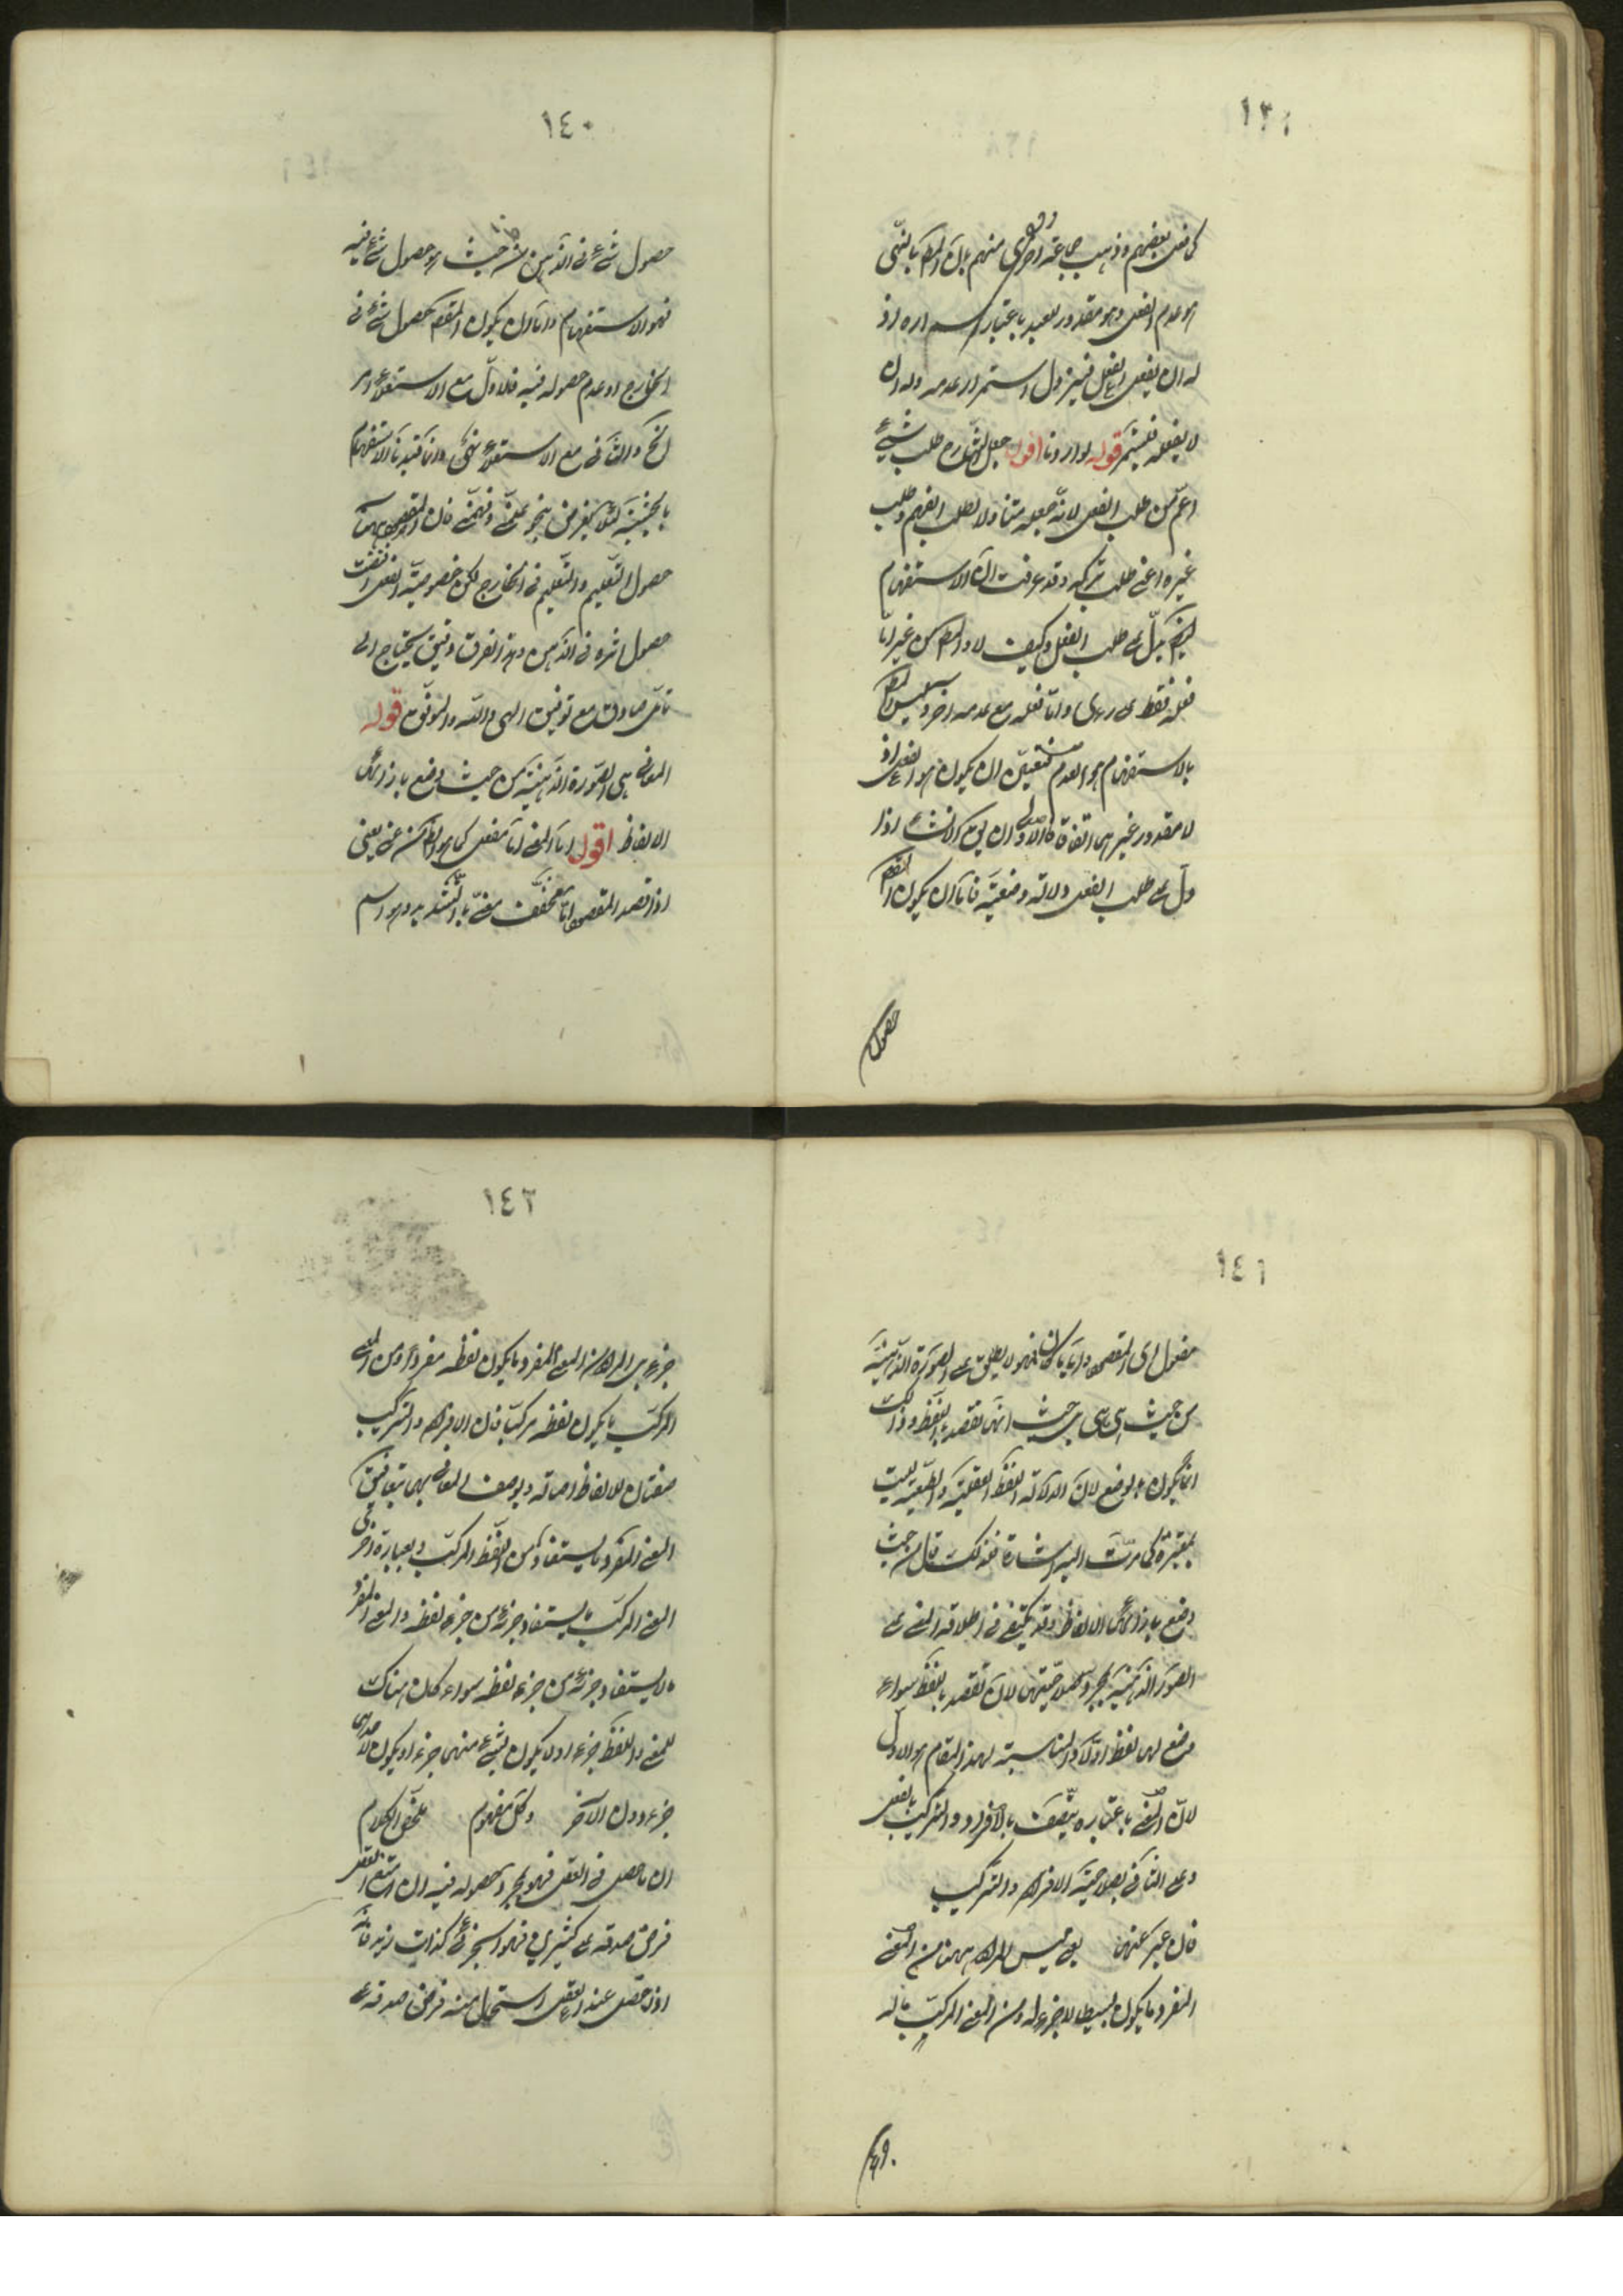 ١٣٩
كما فعل بعضهم وذهب جماعة اخرى منهم الى ان المط بالنهى
هو عدم الفعل وهو مقدور للعبد باعتبار استمراره اذ
له ان يفعل الفعل فيزول استمرار عدمه وله ان
لا يفعله فيستمر قوله لو اردنا اقول جعل الشارح طلب شيء
اعم من طلب الفعل لانه جعله متناولا لطلب الفهم وطلب
غيره اعنى طلب تركه وقد عرفت ان الاستفهام
ايضا يدل على طلب الفعل وكيف لا والمط من غير اما
فعله فقط على رأى واما فعله مع عدمه اخر وليس المط
بالاستفهام هو العدم فتعين ان يكون هو الفعل اذ
لا مقدور غيرهما اتفاقا فالاولى ان يق الانشاء اذا
دل على طلب الفعل دلالة وضعية فاما ان يكون المقصم
حصول
١٤٠
حصول شىء فى الذهن من حيث هو حصول شىء فيه
فهو الاستفهام واما ان يكون المقصم حصول شىء فى
الخارج او عدم حصوله فيه فالاول مع الاستعلاء امر
الخ والثانى مع الاستعلاء نهى وانما قيدنا الاستفهام
بالحيثية لئلا ينتقض بنحو علمنى وفهمنى فان المقصم هنا
حصول التعليم والتفهيم فى الخارج لكن خصوصية الفعل اقتضت
حصول اثره فى الذهن وهذا الفرق دقيق يحتاج الى
تأمل صادق مع توفيق الهى والله الموفق قوله
المعانى هى الصورة الذهنية من حيث وضع بازائها
الالفاظ اقول اما المعنى اما مفعل كما هو الظ من عنى يعنى
اذا قصد المقصم واما مخفف معنى بالتشديد وهو اسم
١٤١
مفعول اى المقصم واياما كان فهو لا يطلق على الصورة الذهنية
من حيث هى هى بل من حيث انها تقصد باللفظ وذلك
انما يكون بالوضع لان الدلالة اللفظ العقلية والطبيعية ليست
بمعتبرة كما مرت اليه اشارة فلذلك قال من حيث
وضع بازائها الالفاظ وقد يكتفى فى اطلاق المعنى على
الصور الذهنية بمجرد صلاحيتها لان تقصد باللفظ سواء
وضع لها لفظ اولا والمناسب لهذا المقام هو الاول
لان المعنى باعتباره يتصف بالافراد والتركيب بالفعل
وعلى الثانى بصلاحية الافراد والتركيب
فان عبر عنها يعنى ليس المراد ههنا من المعنى
المفرد ما يكون بسيطا لا جزء له ومن المعنى المركب ما له
جزء
١٤٢
جزء بل المراد من المعنى المفرد ما يكون لفظه مفردا ومن المعنى
المركب ما يكون لفظه مركبا فان الافراد والتركيب
صفتان للالفاظ اصالة ويوصف المعانى بهما تبعا فيق
المعنى المفرد ما يستفاد من اللفظ المركب وبعبارة اخرى
المعنى المركب ما يستفاد جزئه من جزء لفظه والمعنى المفرد
ما لا يستفاد جزئه من جزء لفظه سواء كان هناك
للمعنى واللفظ جزء او لا يكون لشىء منهما جزء او يكون لاحدهما
جزء دون الآخر وكل مفهوم ملخص الكلام
ان ما حصل فى العقل فهو بمجرد حصوله فيه ان امتنع العقل
فرض صدقه على كثيرين فهو الجزئى كذات زيد فانه
اذا حصل عند العقل استحال منه فرض صدقه على